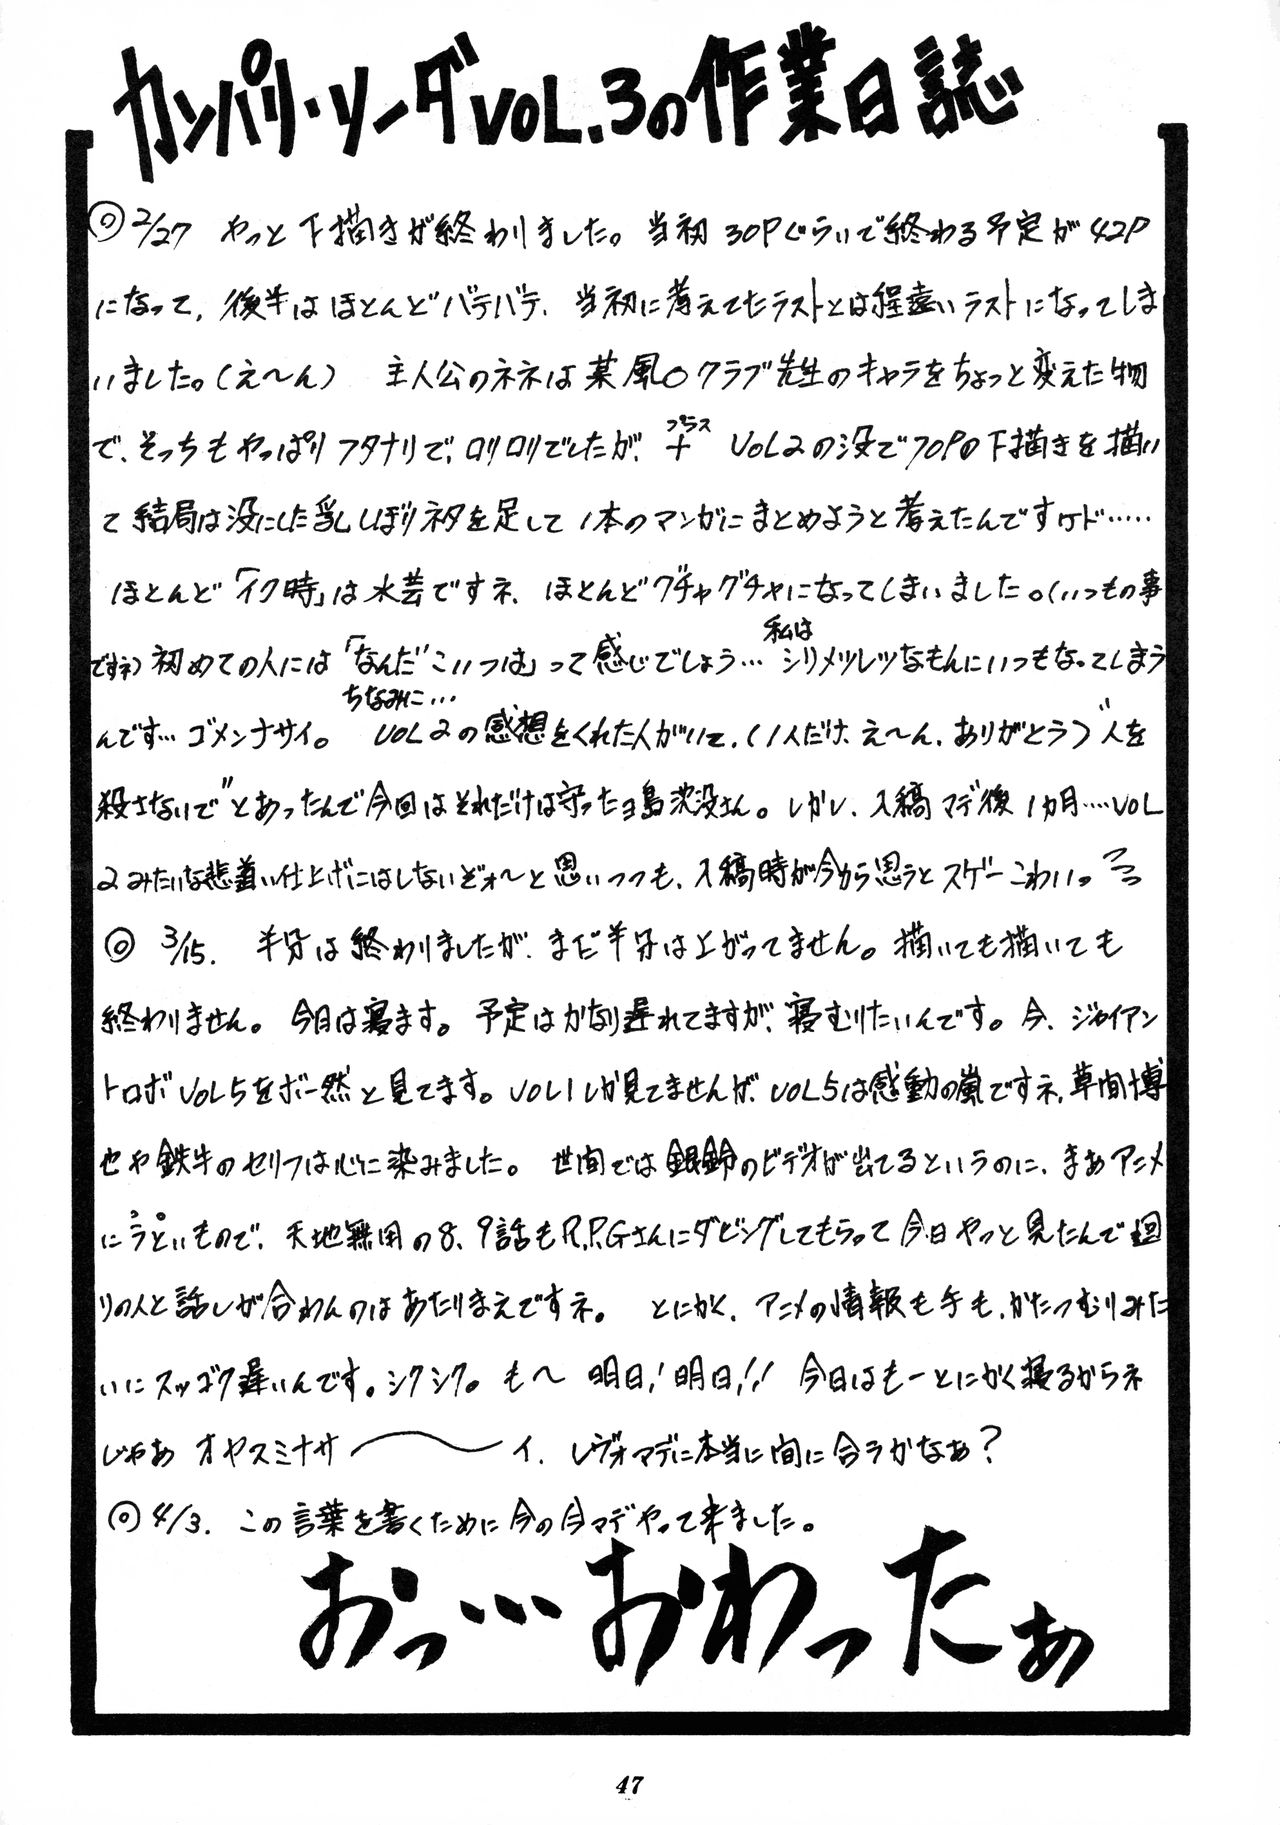 カンパリ・ソーダVOL.3の作業日誌
◎2/27 やっと下描きが終わりました。当初30Pぐらいで終わる予定が42P
になって、後半はほとんどバテバテ、当初に考えてたラストとは程遠いラストになってしま
いました。(え〜ん) 主人公のネネは菜風○クラブ先生のキャラをちょっと変えた物
で、そっちもやっぱりフタナリで、ロリロリでしたが、
プラス
+ VOL2の没で70Pの下描きを描い
て結局は没にした乳しぼりネタを足して1本のマンガにまとめようと考えたんですケド……
ほとんど「イク時」は水芸ですネ、ほとんどグチャグチャになってしまいました。(いつもの事
ですネ)初めての人には「なんだ"こいつは」って感じでしょう…
私は
シリメツレツなもんにいつもなってしまう
んです…ゴメンナサイ。
ちなみに…
VOL2の感想をくれた人がいて、(1人だけ、え〜ん、ありがとう)"人を
殺さないで"とあったんで今回はそれだけは守ったヨ島沈没さん。しかし、入稿マデ後1カ月……VOL
2みたいな悲しい仕上げにはしないぞォ〜と思いつつも、入稿時が今から思うとスゲーこわいっ
◎ 3/15. 半分は終わりましたが、まだ半分は上がってません。描いても描いても
終わりません。今日は寝ます。予定はかなり遅れてますが、寝むりたいんです。今、ジャイアン
トロボVOL5をボー然と見てます。VOL1しか見てませんが、VOL5は感動の嵐ですネ、草間博
也や鉄牛のセリフは心に染みました。世間では銀鈴のビデオが出てるというのに、まぁアニメ
にうといもので、天地無用の8、9話もR.P.Gさんにダビングしてもらって今日やっと見たんで廻
りの人と話しが合わんのはあたりまえですネ。とにかく、アニメの情報も手も、かたつむりみた
いにスッゴク遅いんです。シクシク。も〜明日!明日!! 今日はもーとにかく寝るからネ
じゃあ オヤスミナサ〜イ、レヴォマデに本当に間に合うかなぁ?
◎4/3. この言葉を書くために今の今マデやって来ました。
おっ…おわったぁ
47